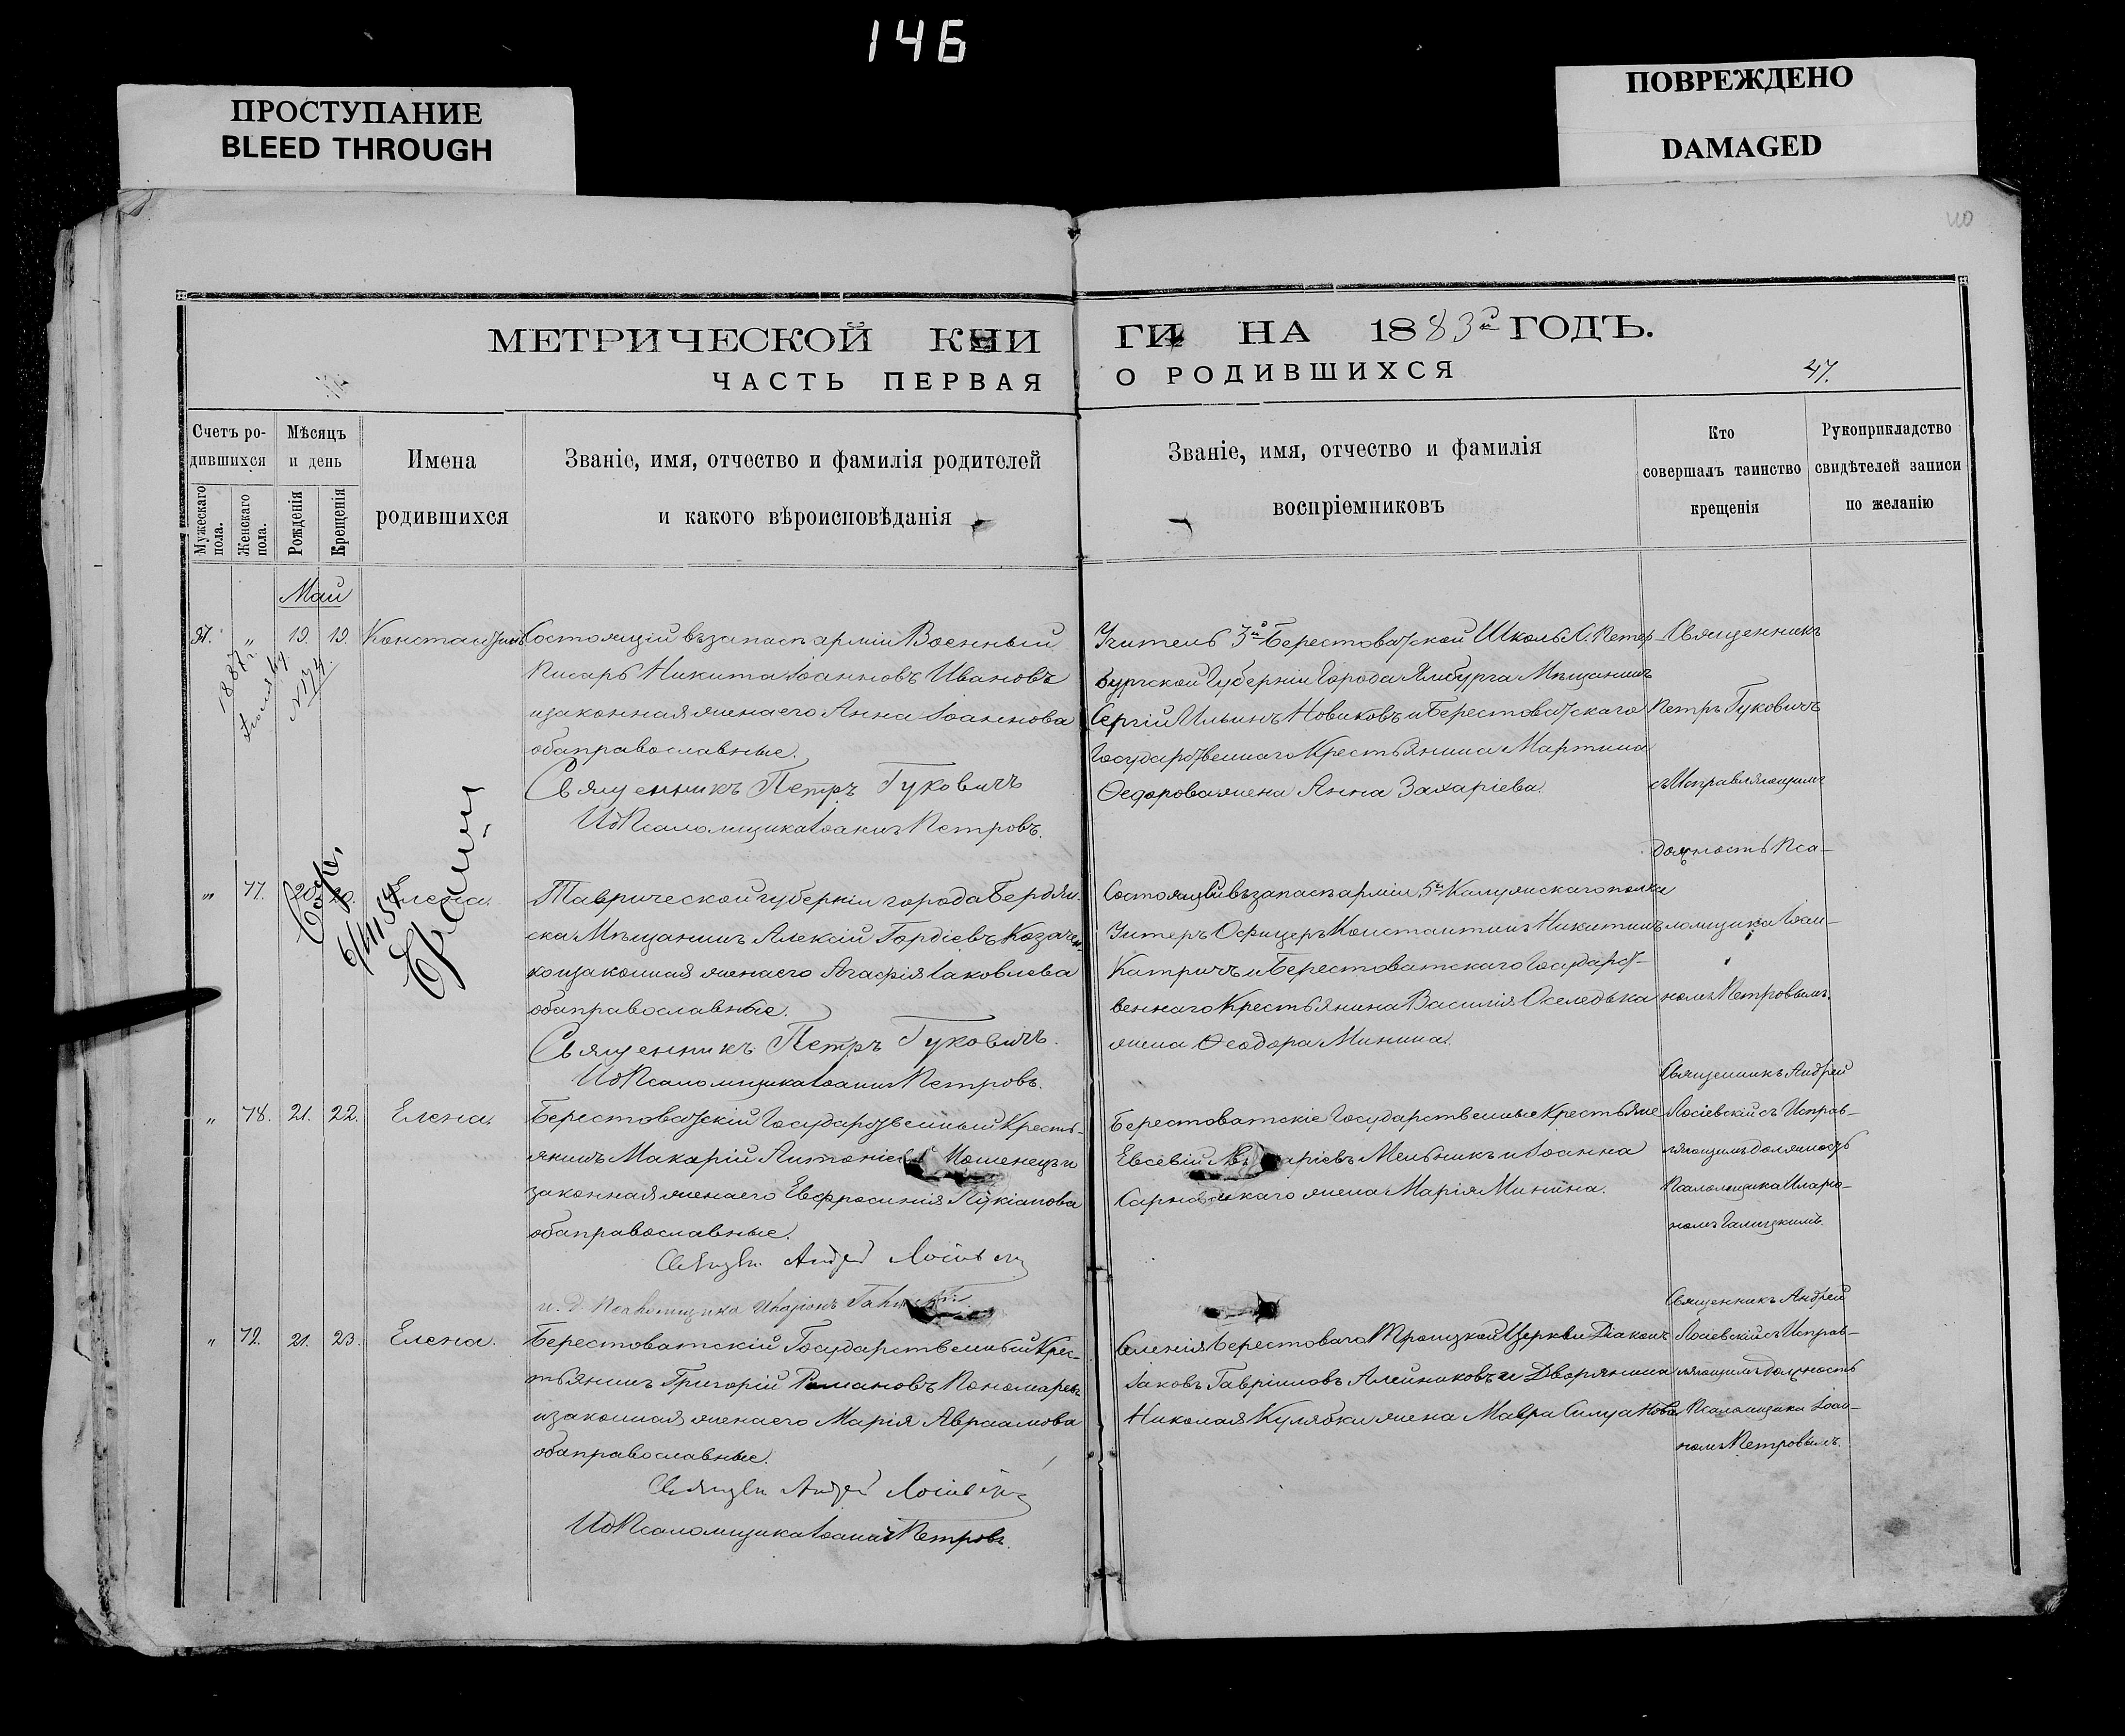 146
ПРОСТУПАНИЕ
BLEED THROUGH
ПОВРЕЖДЕНО
DAMAGED
МЕТРИЧЕСКОЙ КНИ
ГИ НА 1883й ГОДЪ.
ЧАСТЬ ПЕРВАЯ
О РОДИВШИХСЯ
47.
Счетъ ро-
дившихся
Мужескаго пола.
Женскаго пола.
Мѣсяцъ
и день
Рожденія
Крещенія
Имена
родившихся
Званіе, имя, отчество и фамилія родителей
и какого вѣроисповѣданія
Званіе, имя, отчество и фамилія
воспріемниковъ
Кто
совершалъ таинство
крещенія
Рукоприкладство
свидѣтелей записи
по желанію
Май
„ 19. 19. Константинъ
Состоящій въ запасѣ арміи Военный
Писарь Никита Іоанновъ Ивановъ
и законная жена его Анна Іоаннова
оба православные.
Священникъ Петръ Гуковичъ
И д Псаломщика Іоаннъ Петровъ.
Учитель 3й Берестоватской Школы С. Петер-
бургской Губерніи Города Ямбурга Мѣщанинъ
Сергій Ильинъ Новиковъ и Берестоватскаго
Государственнаго Крестьянина Мартина
Ѳедорова жена Анна Захаріева.
Священникъ
Петръ Гуковичъ
съ Исправляющимъ
должность Пса-
ломщика Іоан-
номъ Петровымъ.
„ 77. 20. 20. Елена.
Таврической губерніи города Бердян-
ска Мѣщанинъ Алексій Гордіевъ Козачен-
ко и законная жена его Агафія Іаковлева
оба православные.
Священникъ Петръ Гуковичъ.
И д Псаломщика Іоаннъ Петровъ.
Состоящій въ запасѣ арміи, 5го Калужскаго полка
Унтеръ Офицеръ Константинъ Никитинъ
Катричъ и Берестоватскаго Государст-
веннаго Крестьянина Василія Оселедька
жена Ѳеодора Минина.
„ 78. 21. 22. Елена.
Берестоватскій Государственный Кресть-
янинъ Макарій Антоніевъ Мошенецъ и
законная жена его Евфросинія Лукіанова
оба православные.
и. д. Псаломщика Иларіонъ
Берестоватскіе Государственные Крестьяне
Евсевій Мельникъ и Іоанна
жена Марія Минина.
Священникъ Андрей
Лосіевскій съ Исправ-
ляющимъ должность
Псаломщика Иларіо-
номъ Галицкимъ.
„ 79. 21. 23. Елена.
Берестоватскій Государственный Крес-
тьянинъ Григорій Романовъ Пономаревъ
и законная жена его Марія Авраамова
оба православные.
И д Псаломщика Іоаннъ Петровъ.
Селенія Берестоваго Троицкой Церкви Діаконъ
Іаковъ Гавріиловъ Алейниковъ и Дворянина
Николая Кулябки жена Мавра Силуанова
Священникъ Андрей
Лосіевскій съ Исправ-
ляющимъ должность
Псаломщика Іоан-
номъ Петровымъ.